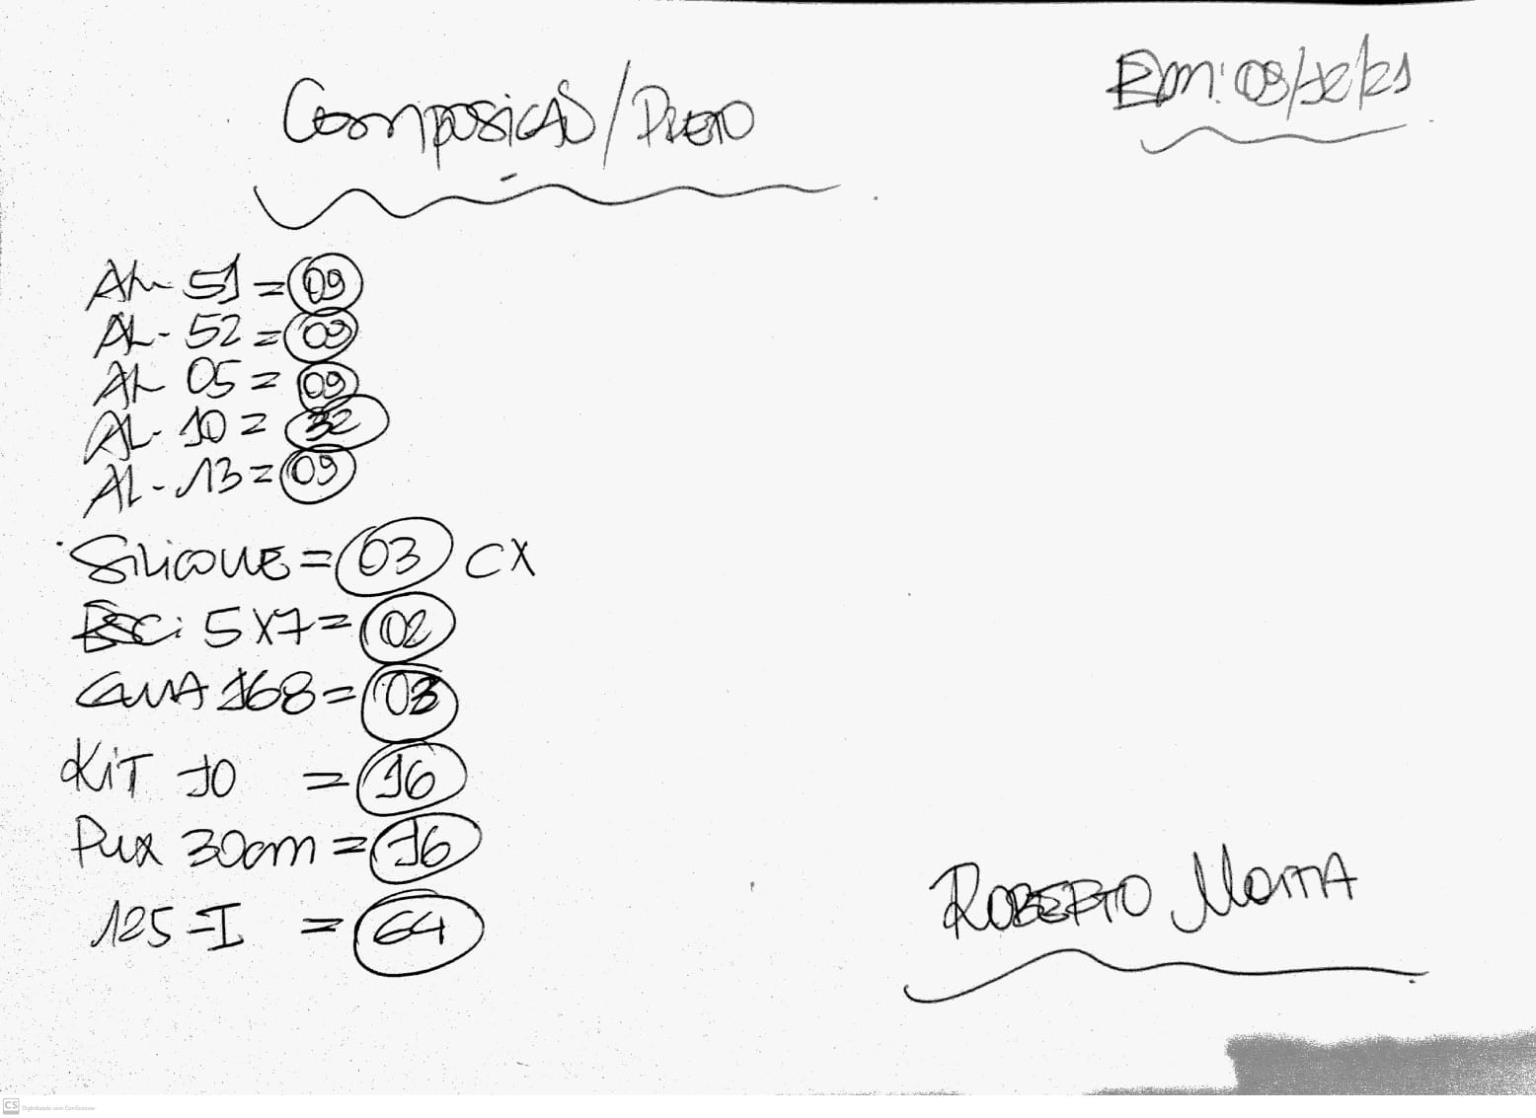 Composição/Preto
Em: 09/12/21
AL- 51 = 09
AL- 52 = 09
AL- 05 = 09
AL- 10 = 32
AL- 13 = 09
Silicone = 03 CX
Esc: 5x7 = 02
GUIA 168 = 03
KiT 10 = 16
Pux 30cm = 16
125-I = 64
ROBERTO
CS Digitalizado com CamScanner